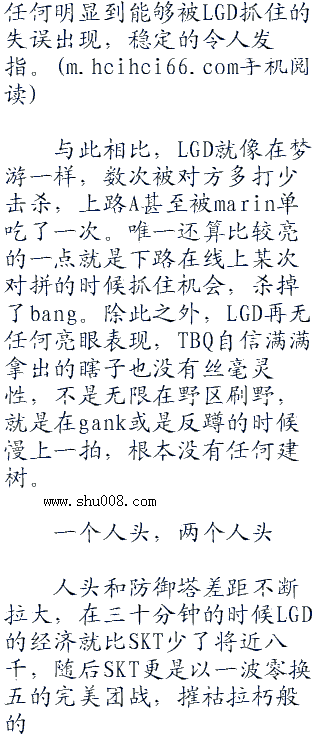 任何明显到能够被LGD抓住的
失误出现，稳定的令人发
指。(m.hcihci66.com手机阅
读)
与此相比，LGD就像在梦
游一样，数次被对方多打少
击杀，上路A甚至被marin单
吃了一次。唯一还算比较亮
的一点就是下路在线上某次
对拼的时候抓住机会，杀掉
了bang。除此之外，LGD再无
任何亮眼表现，TBQ自信满满
拿出的瞎子也没有丝毫灵
性，不是无限在野区刷野，
就是在gank或是反蹲的时候
慢上一拍，根本没有任何建
树。
www.shu008.com
一个人头，两个人头
人头和防御塔差距不断
拉大，在三十分钟的时候LGD
的经济就比SKT少了将近八
千，随后SKT更是以一波零换
五的完美团战，摧枯拉朽般
的